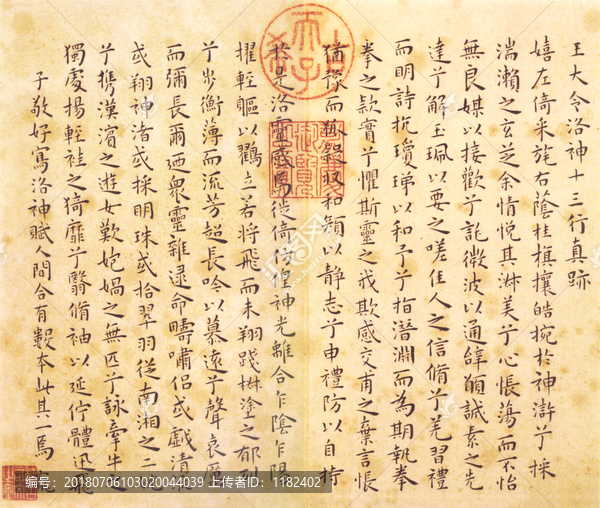 王大令洛神十三行真跡
嬉左倚采旄右蔭桂旗攘皓捥於神滸兮採
湍瀨之玄芝余情悅其淑美兮心悵蕩而不怡
無良媒以接歡兮託微波以通辭願誠素之先
達兮解玉珮以要之嗟佳人之信脩兮羌習禮
而明詩抗瓊珶以和予兮指潛淵而為期執拳
拳之款實兮懼斯靈之我欺感交甫之棄言悵
猶豫而狐疑收和顏以靜志兮申禮防以自持
於是洛靈感焉徙倚彷徨神光離合乍陰乍陽
擢輕軀以鶴立若將飛而未翔踐椒塗之郁烈
兮步衡薄而流芳超長吟以慕遠兮聲哀厲
而彌長爾迺衆靈雜遝命疇嘯侶或戲清流
或翔神渚或採明珠或拾翠羽從南湘之二妃
兮攜漢濱之遊女歎炮媧之無匹兮詠牽牛之
獨處揚輕袿之猗靡兮翳脩袖以延佇體迅飛
子敬好寫洛神賦人間合有數本此其一焉
天子
御覽
编号：20180706103020044039 上传者ID：1182402